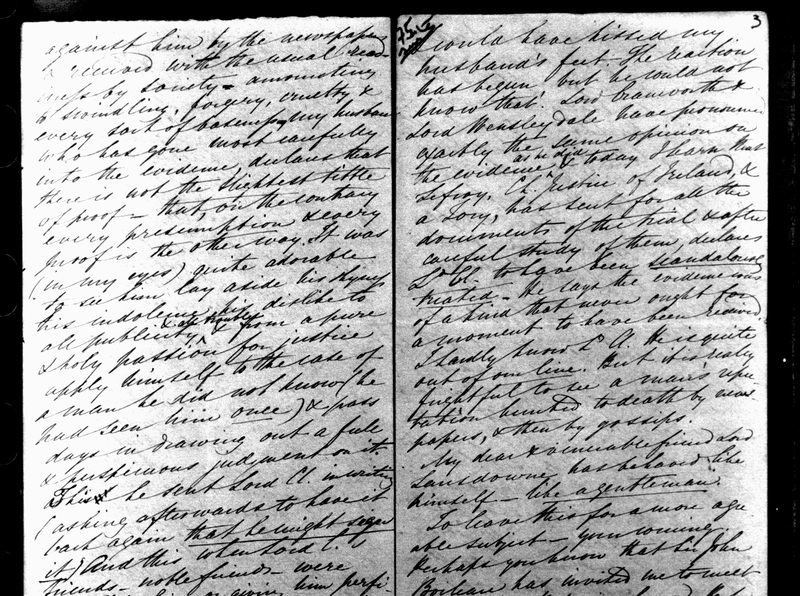 against him by the newspapers
& received with the usual read-
iness by society - amounting
to swindling, forgery, cruelty &
every sort of baseness - my husband
who has gone most carefully
into the evidence, declares that
there is not the slightest tittle
of proof - that, on the contrary
every presumption & every
proof is the other way. It was
(in my eyes) quite adorable
to see him lay aside his
his indolence, his dislike to
all publicity & all trouble & from a pure
& holy passion for justice
apply himself to the case of
a man he did not know (he
had seen him once) & pass
days in drawing out a full
& perspicuous judgment on it.
This he sent Lord Cl. in writing
(asking afterwards to have it
back again that he might sign
it) And this when Lord C.'s
friends - noble friends - were
giving him perfi-
3
I could have kissed my
husband's feet. The reaction
has begun! but he could not
know that. Lord Cranworth &
Lord Wensleydale have pronounced
exactly the same opinion on
the evidence as he did & today I learn that
Lefroy, Ch. Justice of Ireland, &
a Tory, has sent for all the
documents of the trial & after
careful study of them, declares
Ld Cl. to have been scandalously
treated - He says the evidence was
of a kind that never ought for
a moment to have been received
I hardly know Ld Cl. He is quite
out of our line. But it is really
frightful to see a man's repu-
tation hunted to death by news-
papers, & then by gossips.
My dear & venerable friend Lord
Lansdowne has behaved like
himself - like a gentleman.
To leave this for a more agre-
able subject - your coming.
Perhaps you know that Sir John
Boileau has invited me to meet